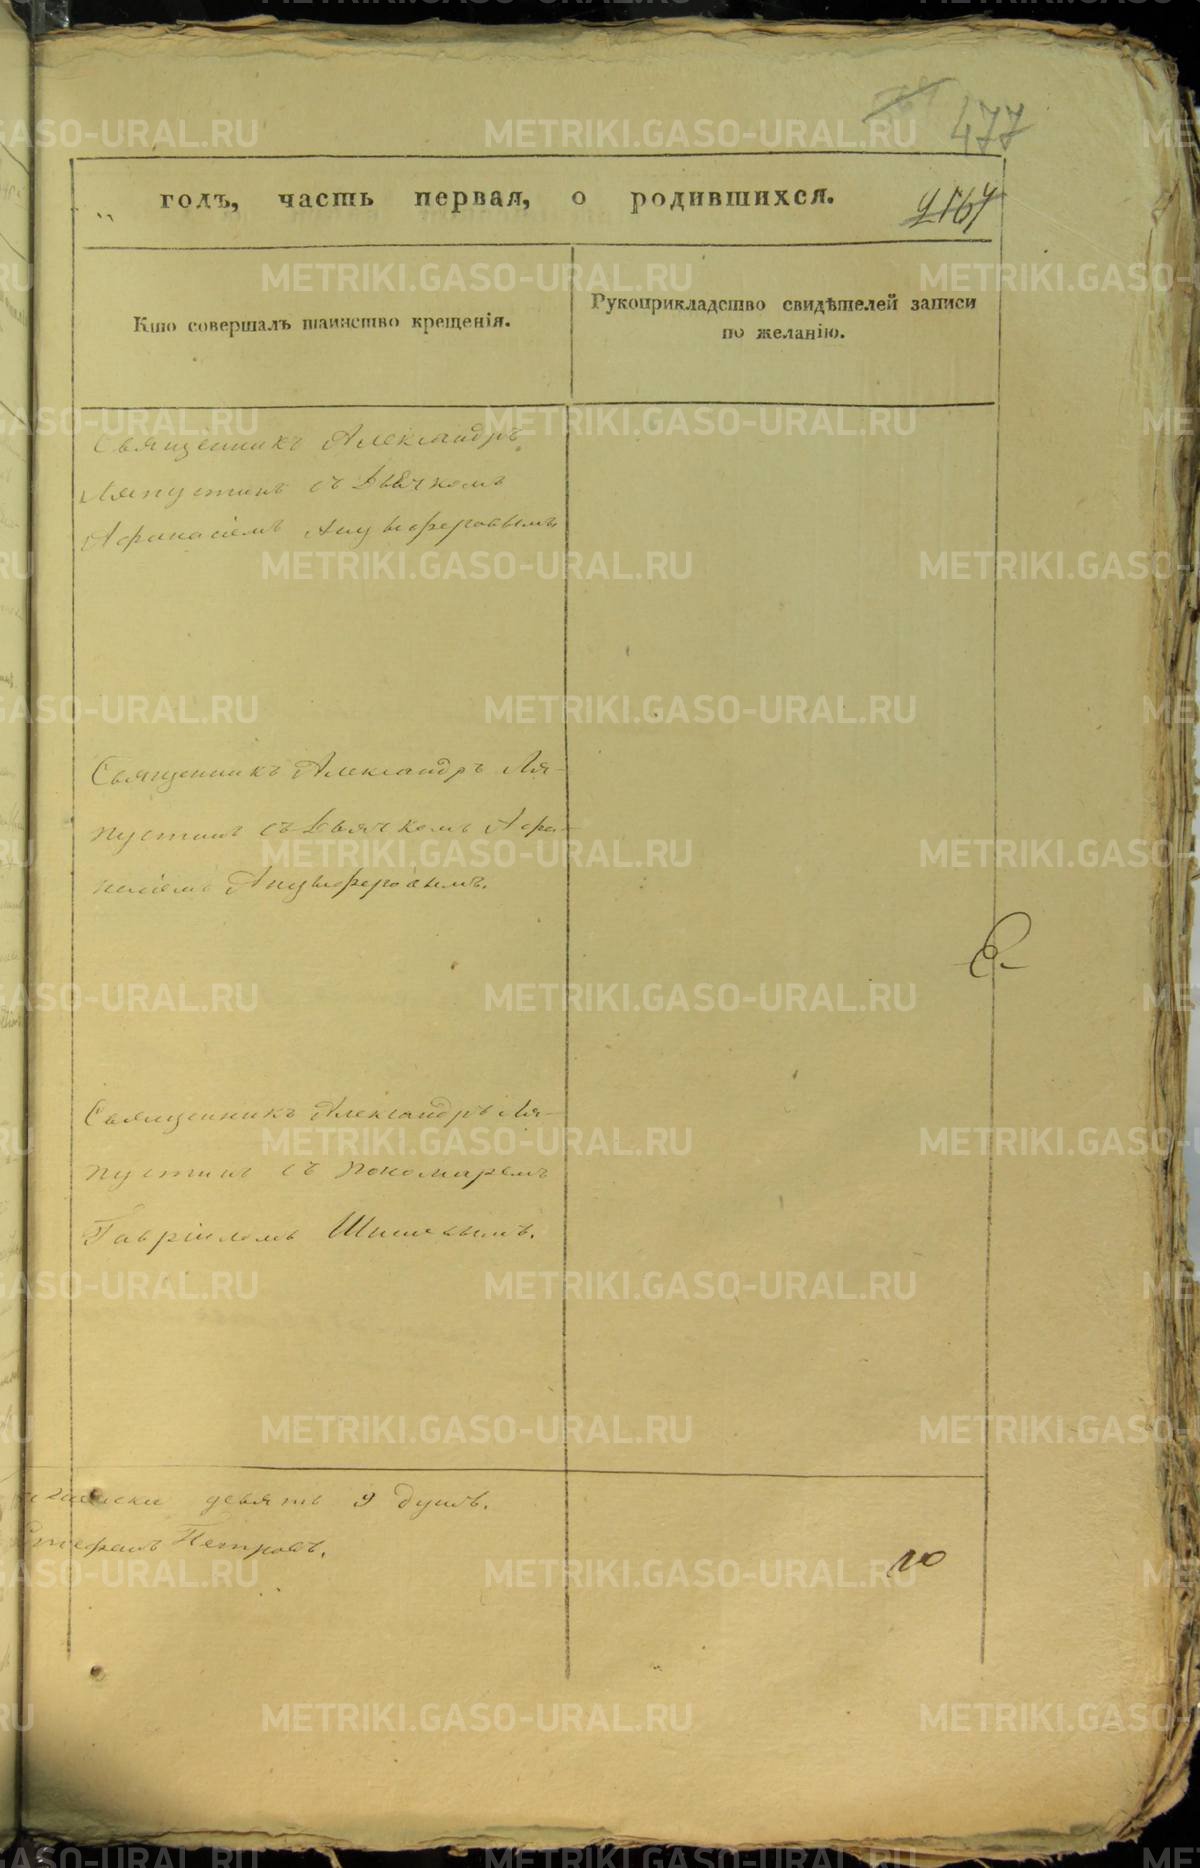 477
годъ, часть первая, о родившихся.
Кто совершалъ таинство крещенія.
Рукоприкладство свидѣтелей записи
по желанію.
Священникъ Александръ
Ляпустинъ съ Дьячкомъ
Афанасіемъ Анцыферовымъ
Священникъ Александръ Ля-
пустинъ съ Дьячкомъ Афа-
насіемъ Анцыферовымъ.
Священникъ Александръ Ля-
пустинъ съ пономаремъ
Гавріиломъ Шишевымъ.
девять 9 душъ.
Стефанъ Петровъ.
10
METRIKI.GASO-URAL.RU